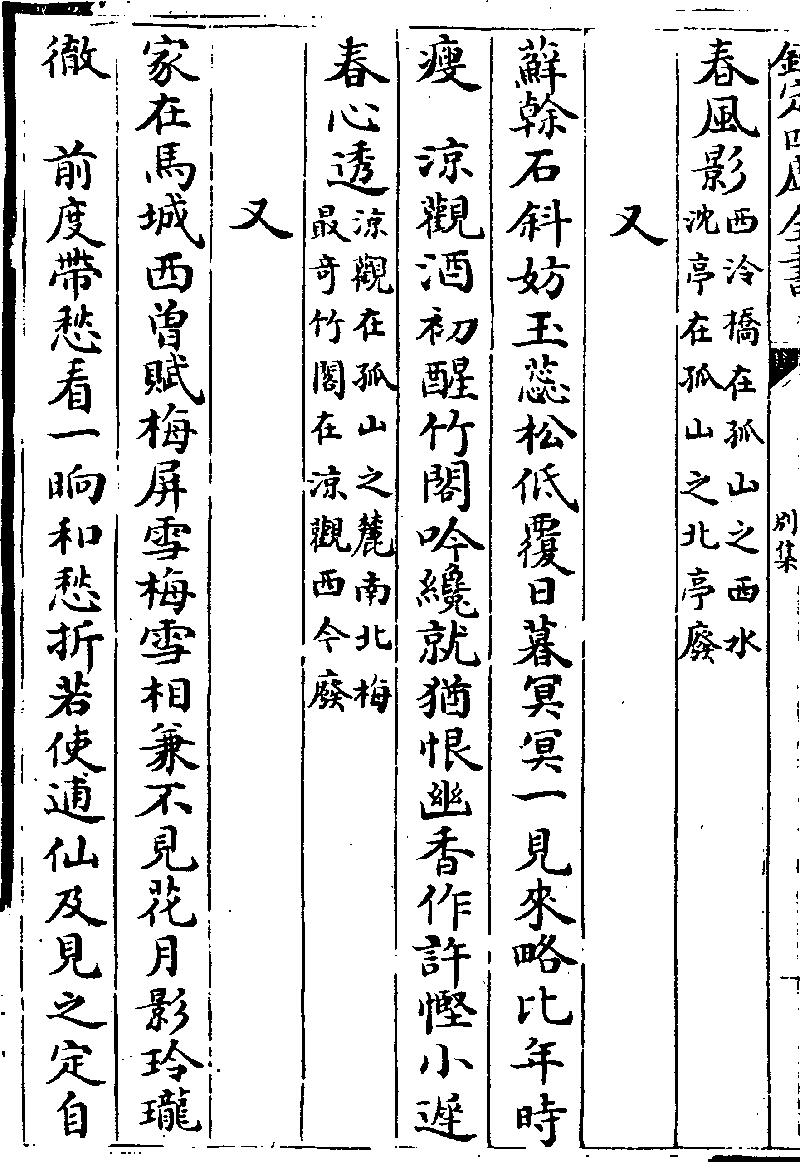 欽定四庫全書
別集
春風影西泠橋在孤山之西水
沈亭在孤山之北亭廢
又
蘚幹石斜妨玉蕊松低覆日暮冥冥一見來略比年時
瘦　涼觀酒初醒竹閣吟纔就猶恨幽香作許慳小遲
春心透涼觀在孤山之麓南北梅
最奇竹閣在涼觀西今廢
又
家在馬城西曾賦梅屏雪梅雪相兼不見花月影玲瓏
徹　前度帶愁看一晌和愁折若使逋仙及見之定自